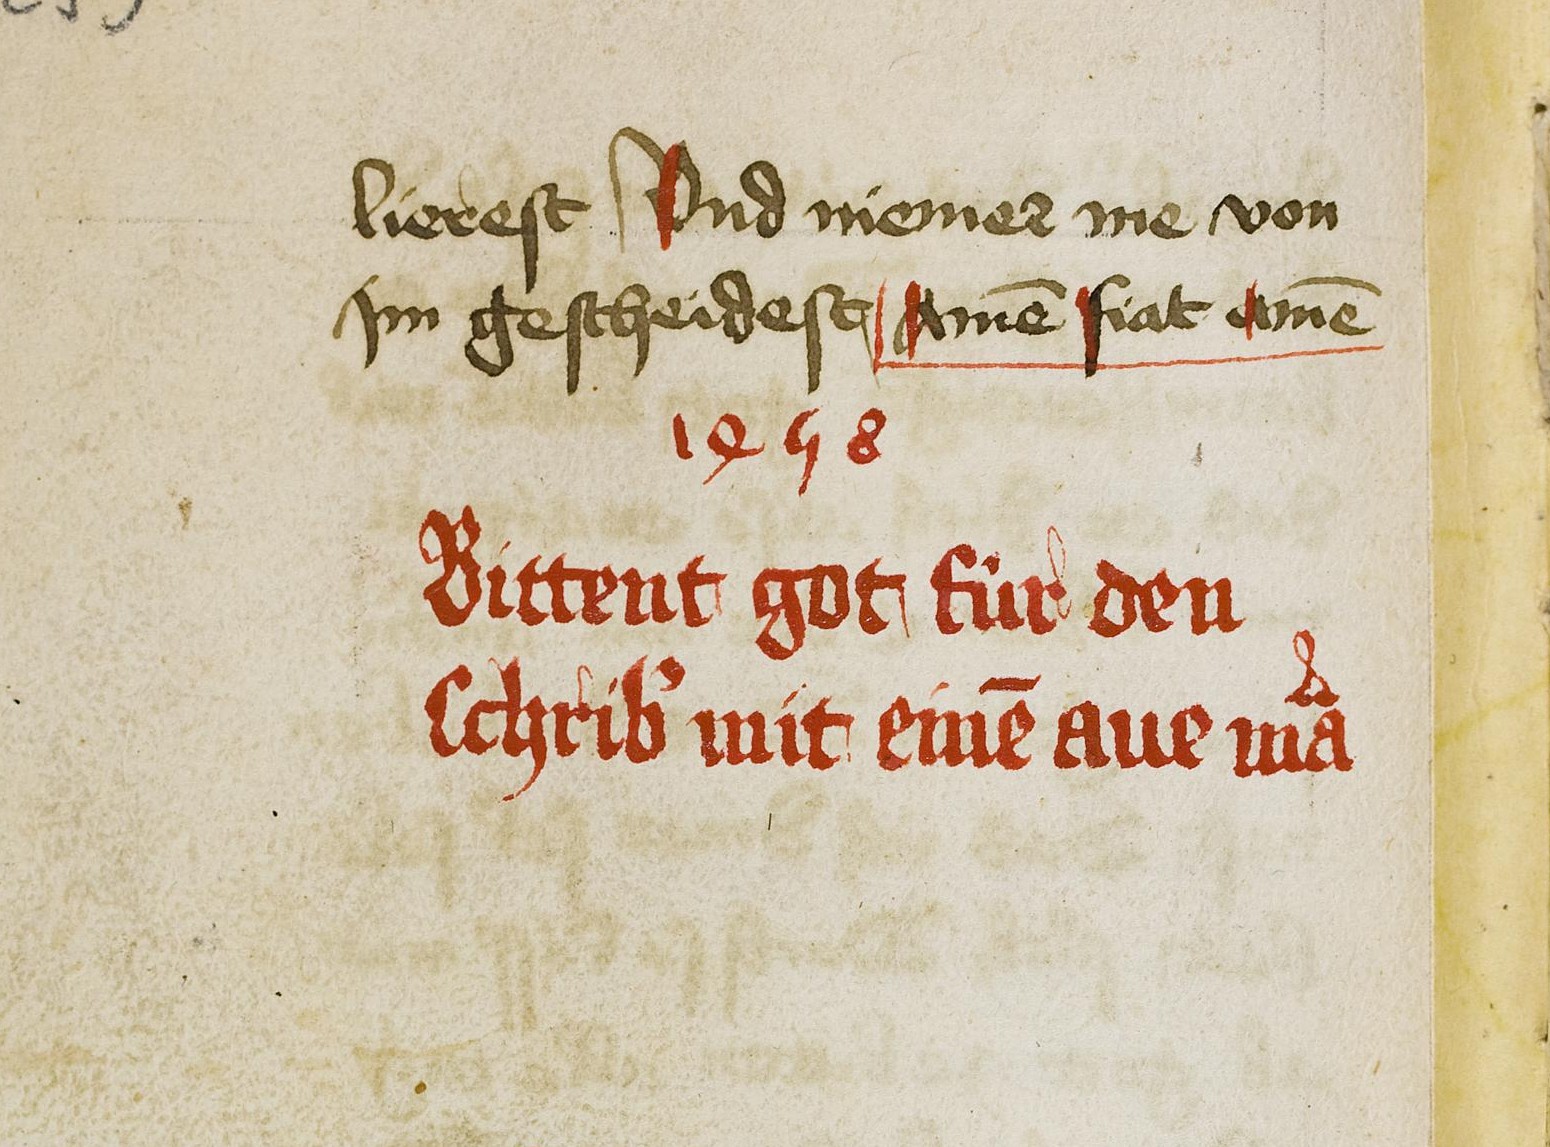 lierest Vnd niemer me von
jm gescheidest Amē fiat amē
1458
Bittent got für den
Schrib' mit einē aue mͣa